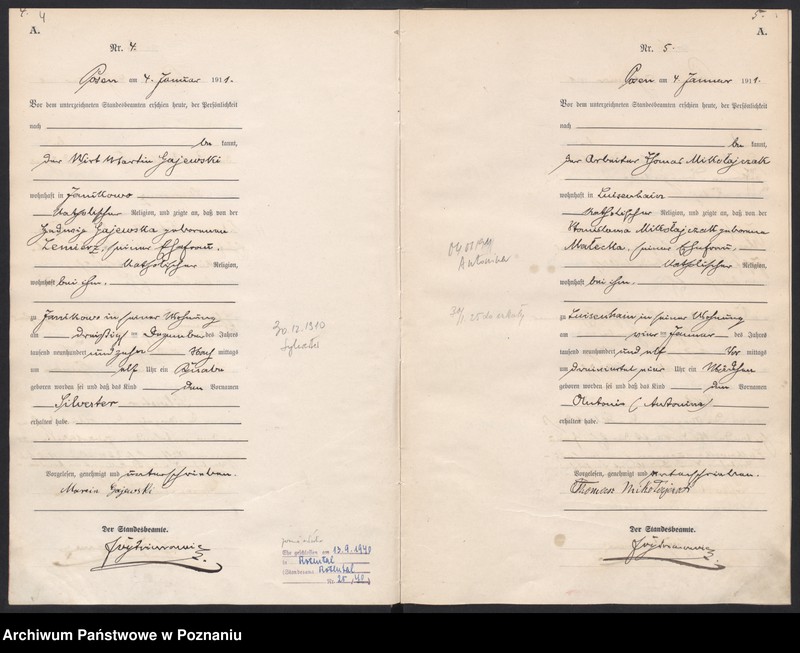 4.
4
A.
Nr. 4.
Posen am 4. Januar 1911.
Vor dem unterzeichneten Standesbeamten erschien heute, der Persönlichkeit
nach
be kannt,
der Wirt Martin Gajewski
wohnhaft in Janikowo
katholischer Religion, und zeigte an, daß von der
Hedwig Gajewska geborenen
seiner Ehefrau,
katholischer Religion,
wohnhaft bei ihm,
zu Janikowo in seiner Wohnung
am dreißigsten Dezember des Jahres
tausend neunhundert und zehn Nach mittags
um elf Uhr ein Knabe
geboren worden sei und daß das Kind den Vornamen
Silvester
erhalten habe.
Vorgelesen, genehmigt und unterschrieben.
Marcin Gajewski
Der Standesbeamte.
30.12.1910
13.9.1940
Rosental
Rosental
Nr. 25/40
5.
A.
Nr. 5.
Posen am 4. Januar 1911.
Vor dem unterzeichneten Standesbeamten erschien heute, der Persönlichkeit
nach
be kannt,
der Arbeiter Thomas Mikołajczak
wohnhaft in Luisenhain
katholischer Religion, und zeigte an, daß von der
Stanislawa Mikołajczak geborenen
Małecka, seiner Ehefrau,
katholischer Religion,
wohnhaft bei ihm,
zu Luisenhain in seiner Wohnung
am vier ten Januar des Jahres
tausend neunhundert und elf Vor mittags
um Uhr ein Mädchen
geboren worden sei und daß das Kind den Vornamen
Antonie (Antonina)
erhalten habe.
Vorgelesen, genehmigt und unterschrieben.
Thomas Mikołajczak
Der Standesbeamte.
Archiwum Państwowe w Poznaniu